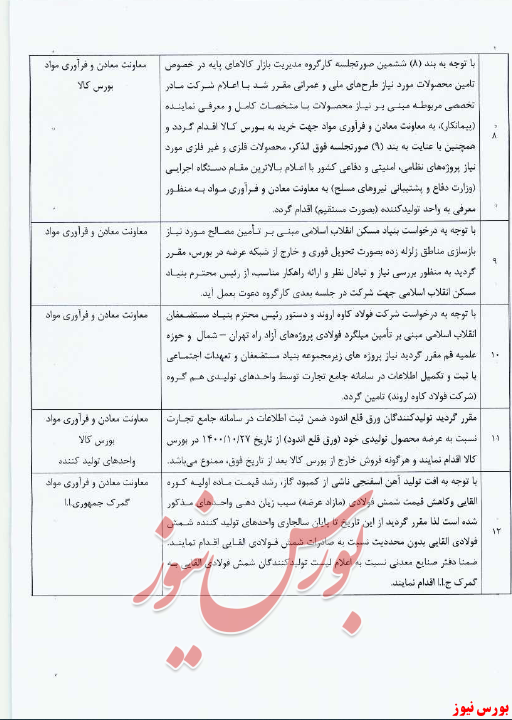 ۸
با توجه به بند (۸) ششمین صورتجلسه کارگروه مدیریت بازار کالاهای پایه در خصوص
تامین محصولات مورد نیاز طرح‌های ملی و عمرانی مقرر شد با اعلام شرکت مادر
تخصصی مربوطه مبنی بر نیاز محصولات با مشخصات کامل و معرفی نماینده
(پیمانکار)، به معاونت معادن و فرآوری مواد جهت خرید به بورس کالا اقدام گردد و
همچنین با عنایت به بند (۹) صورتجلسه فوق الذکر، محصولات فلزی و غیر فلزی مورد
نیاز پروژه‌های نظامی، امنیتی و دفاعی کشور با اعلام بالاترین مقام دستگاه اجرایی
(وزارت دفاع و پشتیبانی نیروهای مسلح) به معاونت معادن و فرآوری مواد به منظور
معرفی به واحد تولیدکننده (بصورت مستقیم) اقدام گردد.
معاونت معادن و فرآوری مواد
بورس کالا
۹
با توجه به درخواست بنیاد مسکن انقلاب اسلامی مبنی بر تأمین مصالح مورد نیاز
بازسازی مناطق زلزله زده بصورت تحویل فوری و خارج از شبکه عرضه در بورس، مقرر
گردید به منظور بررسی نیاز و تبادل نظر و ارائه راهکار مناسب، از رئیس محترم بنیاد
مسکن انقلاب اسلامی جهت شرکت در جلسه بعدی کارگروه دعوت بعمل آید.
معاونت معادن و فرآوری مواد
۱۰
با توجه به درخواست شرکت فولاد کاوه اروند و دستور رئیس محترم بنیاد مستضعفان
انقلاب اسلامی مبنی بر تأمین میلگرد فولادی پروژه‌های آزاد راه تهران – شمال و حوزه
علمیه قم مقرر گردید نیاز پروژه های زیرمجموعه بنیاد مستضعفان و تعهدات اجتماعی
با ثبت و تکمیل اطلاعات در سامانه جامع تجارت توسط واحدهای تولیدی هم گروه
(شرکت فولاد کاوه اروند) تامین گردد.
معاونت معادن و فرآوری مواد
۱۱
مقرر گردید تولیدکنندگان ورق قلع اندود ضمن ثبت اطلاعات در سامانه جامع تجارت
نسبت به عرضه محصول تولیدی خود (ورق قلع اندود) از تاریخ ۱۴۰۰/۱۰/۲۷ در بورس
کالا اقدام نمایند و هرگونه فروش خارج از بورس کالا بعد از تاریخ فوق، ممنوع می‌باشد.
معاونت معادن و فرآوری مواد
بورس کالا
واحدهای تولید کننده
۱۲
با توجه به افت تولید آهن اسفنجی ناشی از کمبود گاز، رشد قیمت ماده اولیه کوره
القایی وکاهش قیمت شمش فولادی (مازاد عرضه) سبب زیان دهی واحدهای مذکور
شده است لذا مقرر گردید از این تاریخ تا پایان سالجاری واحدهای تولید کننده شمش
فولادی القایی بدون محدودیت نسبت به صادرات شمش فولادی القایی اقدام نمایند.
ضمنا دفتر صنایع معدنی نسبت به اعلام لیست تولیدکنندگان شمش فولادی القایی به
گمرک ج.ا.ا اقدام نمایند.
معاونت معادن و فرآوری مواد
گمرک جمهوری.ا.ا
بورس نیوز
بورس نیوز